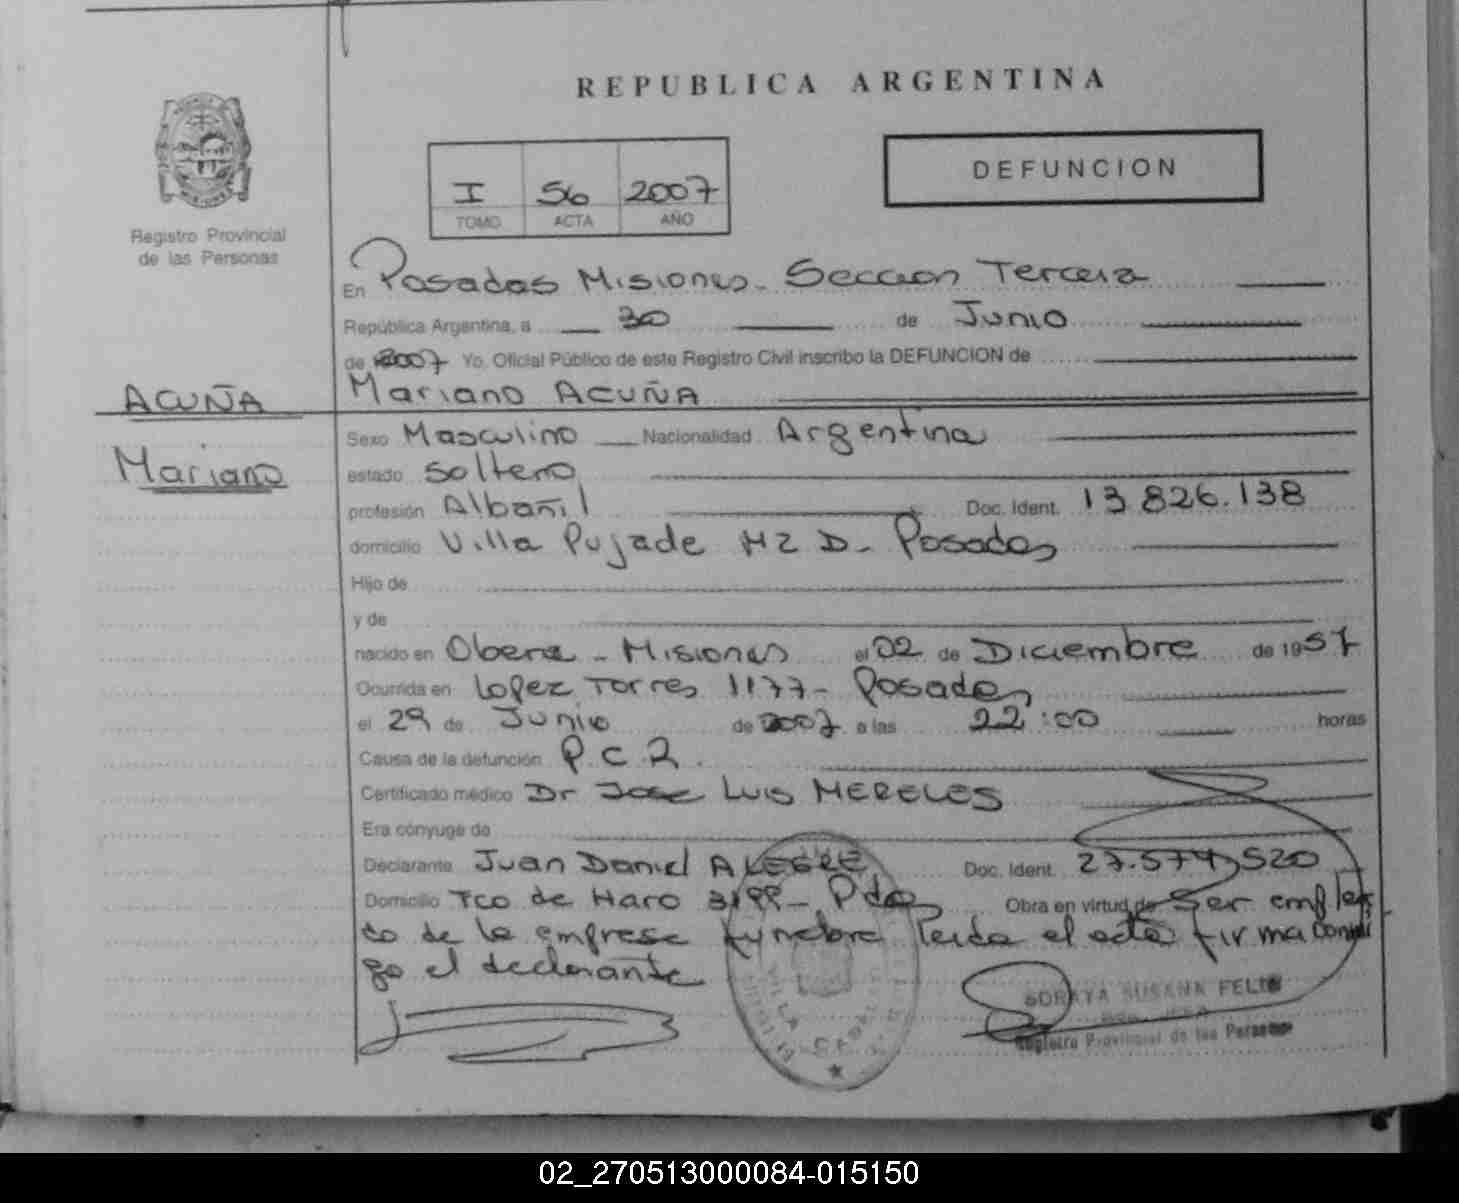 REPUBLICA ARGENTINA
DEFUNCION
I 56 2007
TOMO ACTA AÑO
Registro Provincial
de las Personas
En Posadas Misiones - Seccion Tercera
República Argentina, a 30 de Junio
de 2007 Yo, Oficial Público de este Registro Civil inscribo la DEFUNCION de
ACUÑA
Mariano ACUÑA
Mariano
Sexo Masculino Nacionalidad Argentina
estado Soltero
profesión Albañil Doc. Ident. 13.826.138
domicilio Villa Pujade MZ D - Posadas
Hijo de
y de
nacido en Obera - Misiones el 02 de Diciembre de 1957
Ocurrida en Lopez Torres 1177 - Posadas
el 29 de Junio de 2007 a las 22:00 horas
Causa de la defunción P.C.R.
Certificado médico Dr Jose Luis MERELES
Era cónyuge de
Declarante Juan Daniel ALEGRE Doc. Ident. 27.574.520
Domicilio Fco de Haro 3199 - Pdas Obra en virtud de Ser emplea
do de la empresa funebre Leida el acta firma conmi
go el declarante
SORAYA SUSANA FELIX
Registro Provincial de las Personas
02_270513000084-015150